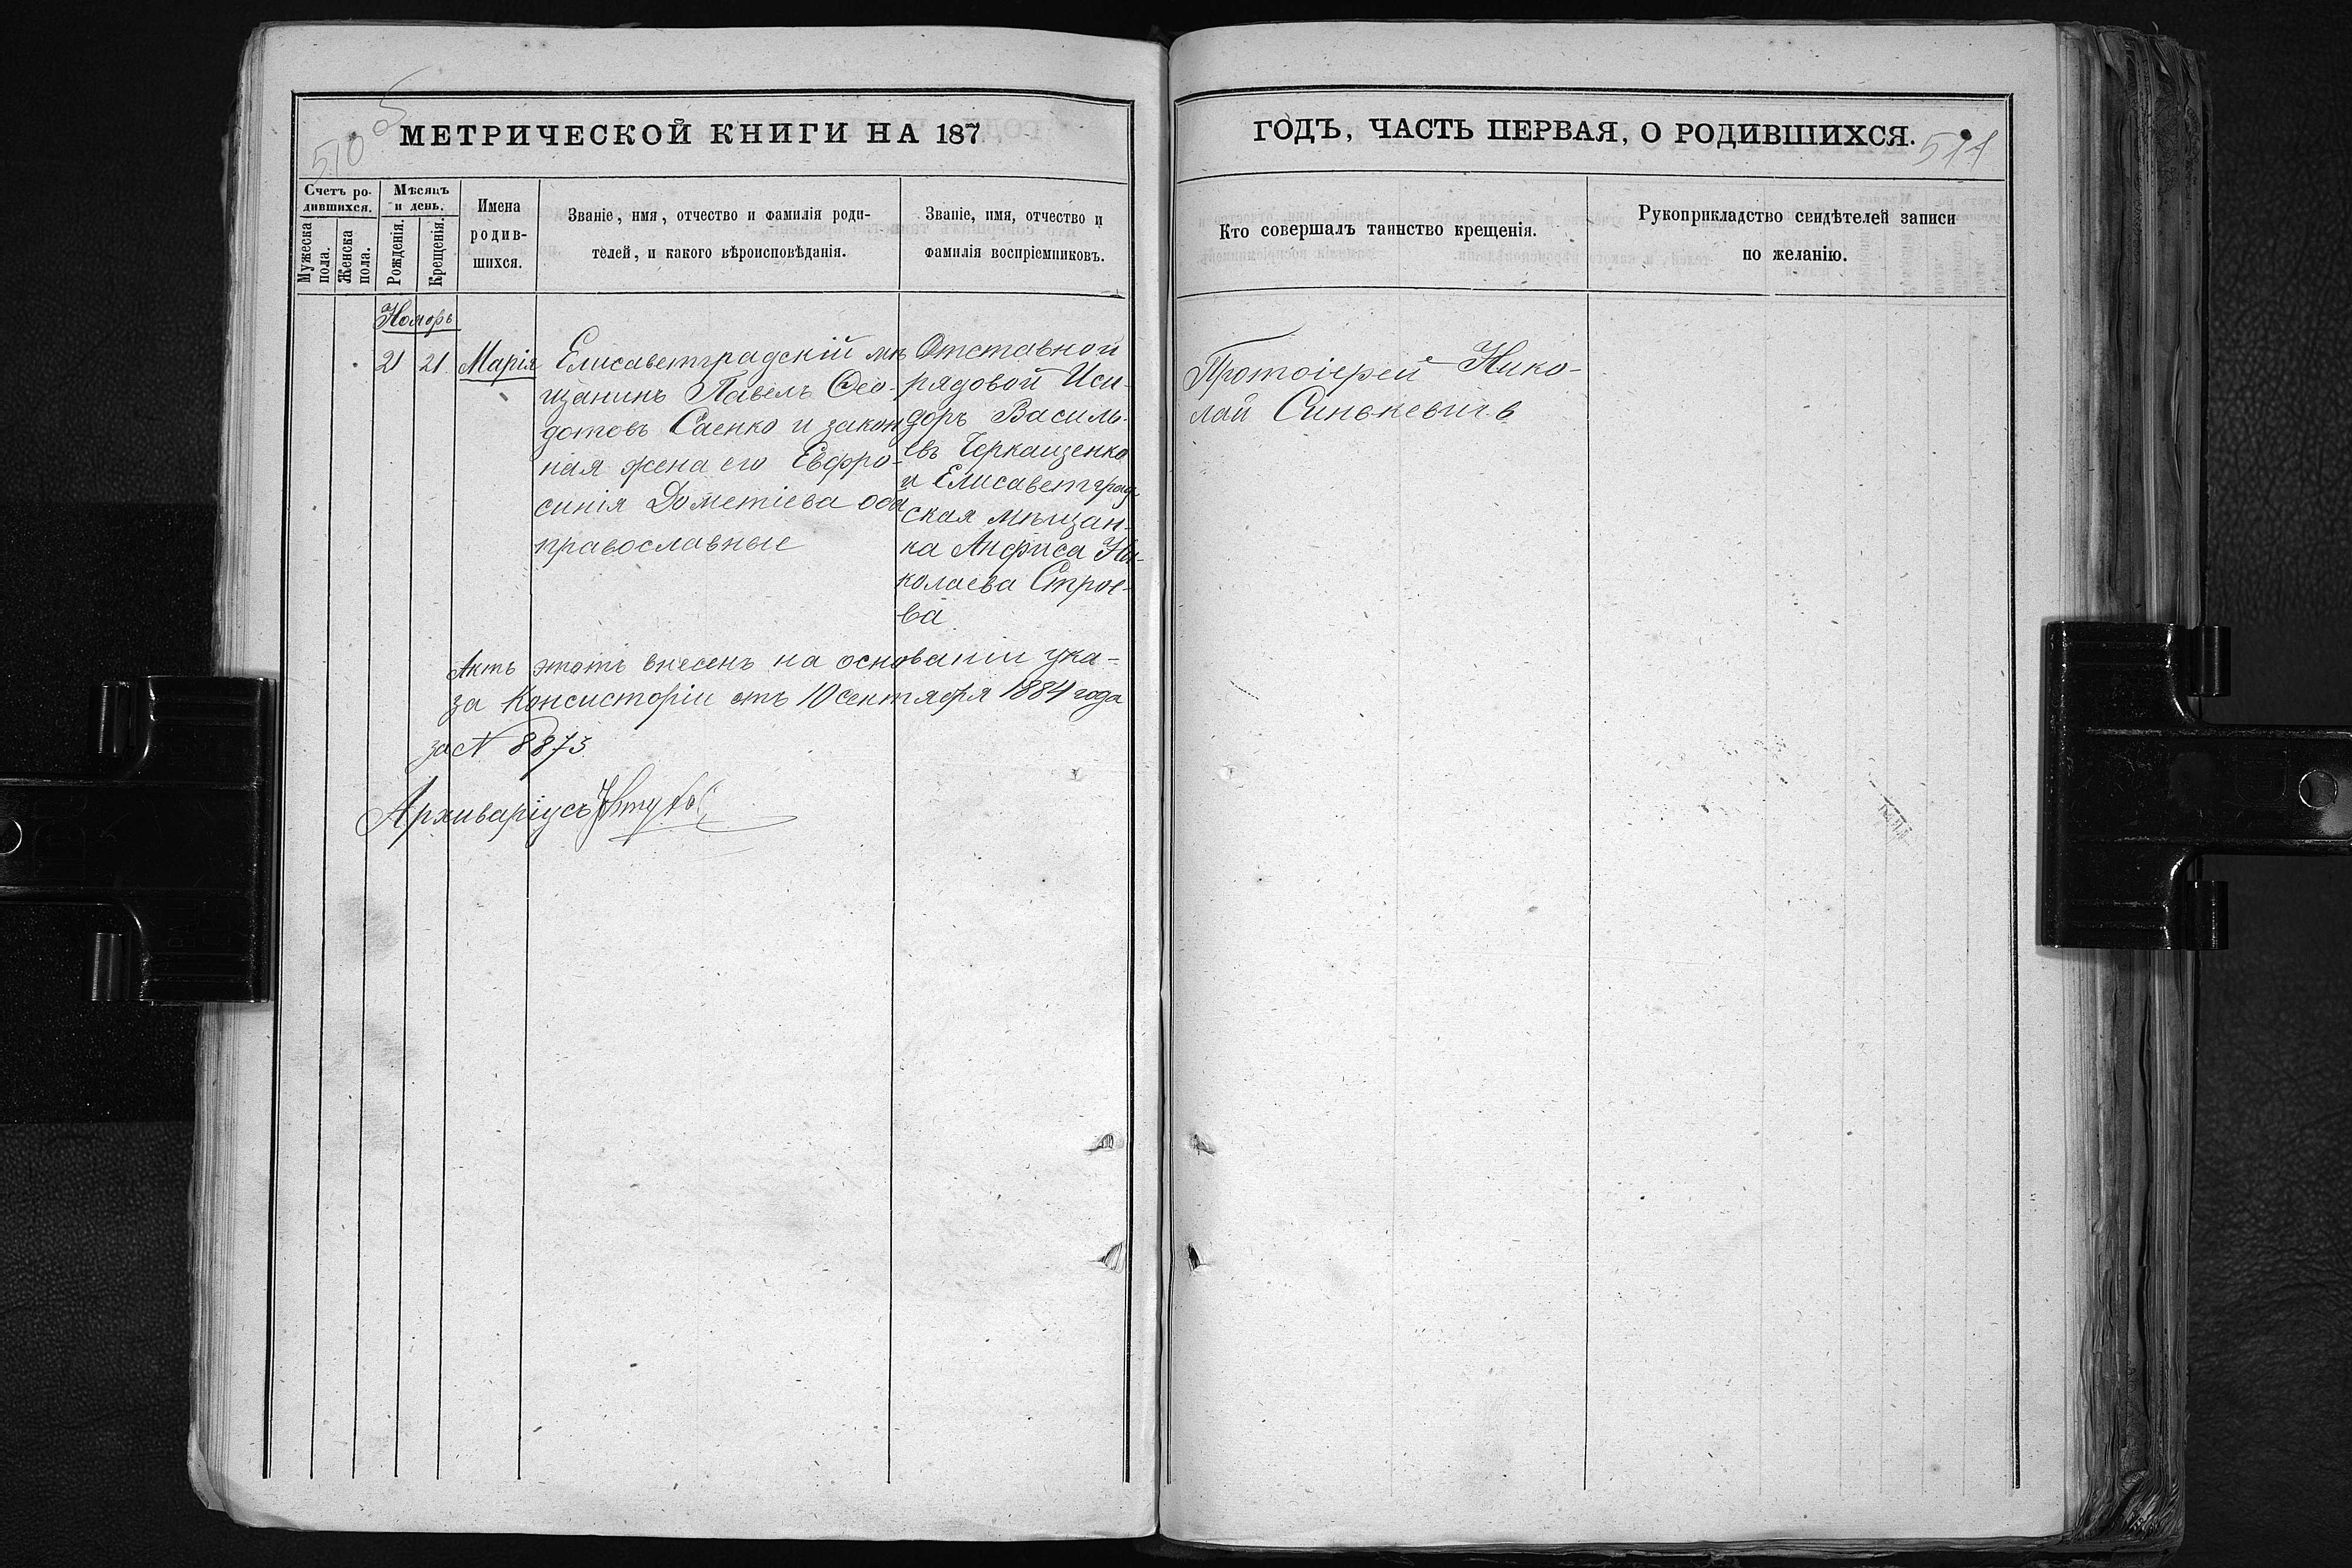 510
МЕТРИЧЕСКОЙ КНИГИ НА 187
Счетъ ро-
дившихся.
Мѣсяцъ
и день.
Мужеска
пола.
Женска
пола.
Рожденія.
Крещенія.
Имена
родив-
шихся.
Званіе, имя, отчество и фамилія роди-
телей, и какого вѣроисповѣданія.
Званіе, имя, отчество и
фамилія воспріемниковъ.
Ноябрь
21 21 Марія
Елисаветградскій мѣ
щанинъ Павелъ Ѳео-
дотовъ Саенко и закон
ная жена его Евфро-
синія Дометіева оба
православные
Отставной
рядовой Иси-
доръ Василь-
евъ Черкащенко
и Елисаветград
ская мѣщан-
ка Анфиса Ни-
колаева Строе-
ва
Актъ этотъ внесенъ на основаніи ука-
за Консисторіи отъ 10 сентября 1884 года
за N 8873.
Архиваріусъ
ГОДЪ, ЧАСТЬ ПЕРВАЯ, О РОДИВШИХСЯ.
511
Кто совершалъ таинство крещенія.
Рукоприкладство свидѣтелей записи
по желанію.
Протоіерей Нико-
лай Синькевичъ